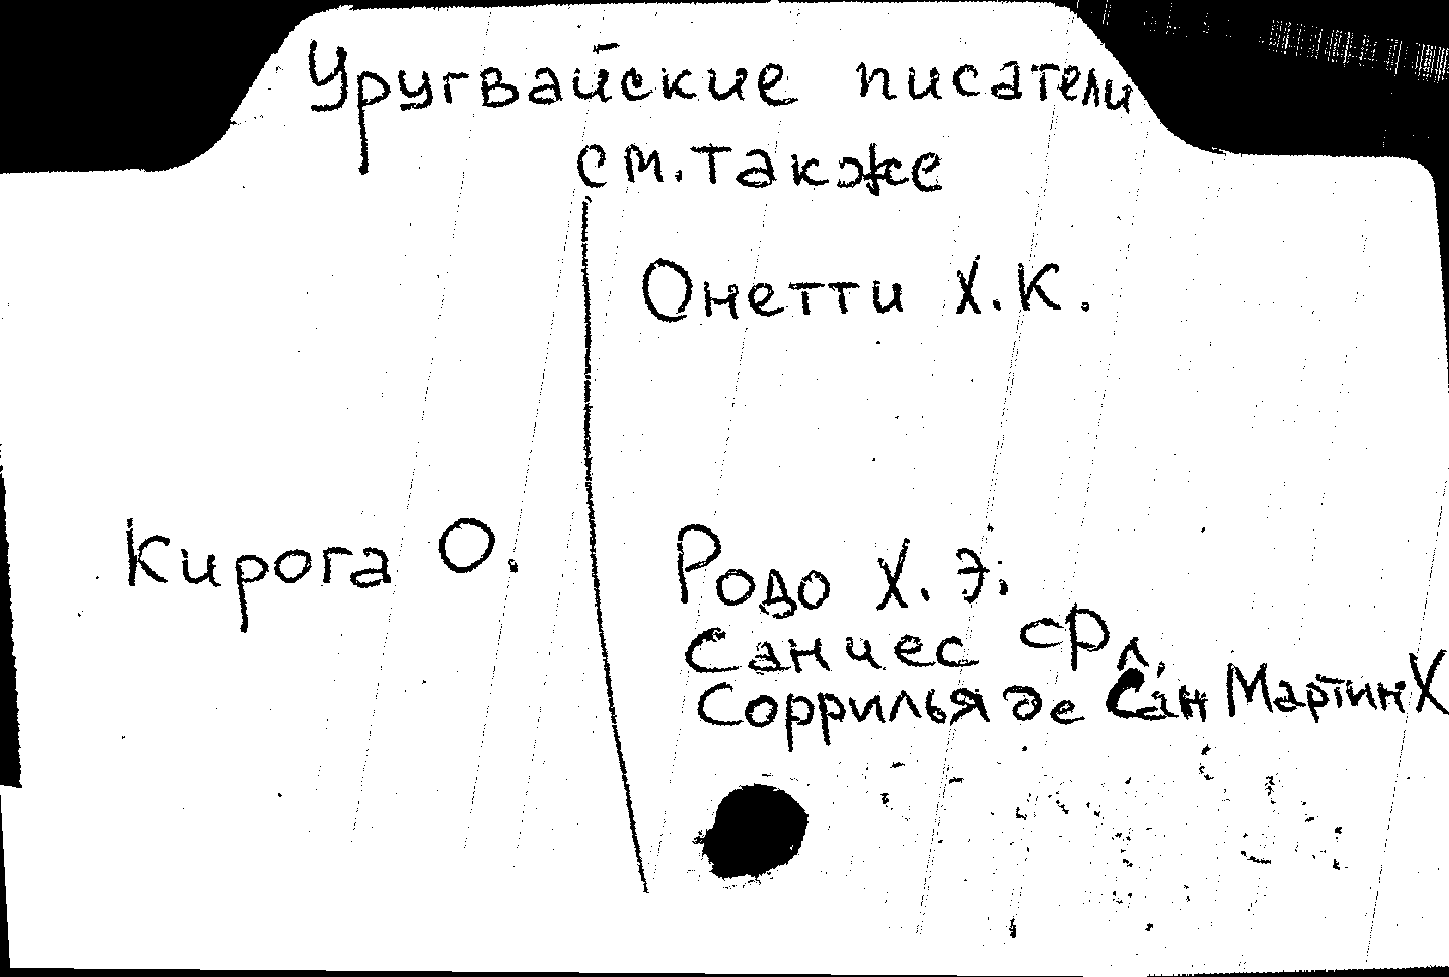 Уругвайские писатели
см. также
Онетти Х.К.
Кирога О.
Родо Х.Э.
Санчес Фл.
Соррилья де Сан Мартин Х